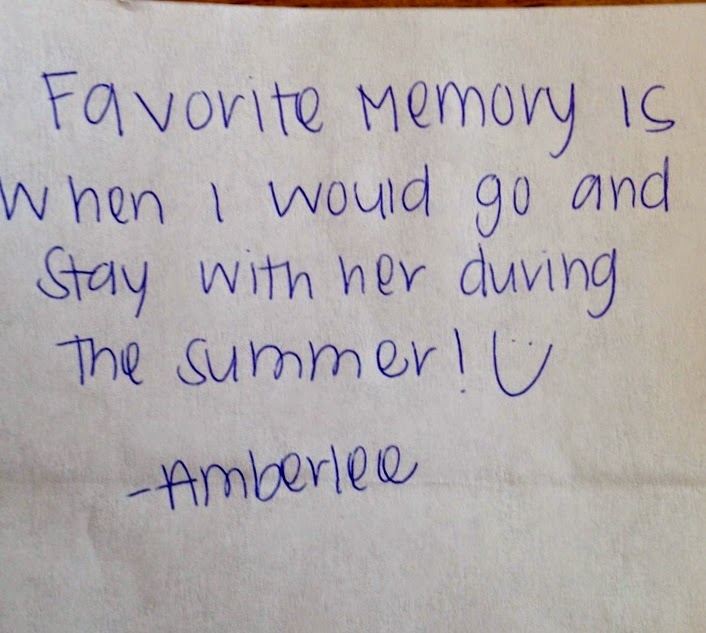 Favorite Memory is
when I would go and
stay with her during
the summer! :)
-Amberlee